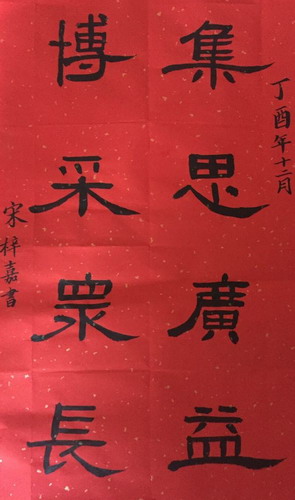 丁酉年十二月
集思廣益
博采眾長
宋梓嘉書